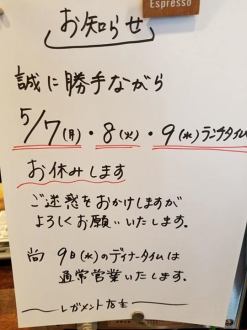 Espresso
お知らせ
誠に勝手ながら
5/7(月)・8(火)・9(水)ランチタイム
お休みします
ご迷惑をおかけしますが
よろしくお願いいたします。
尚 9日(水)のディナータイムは
通常営業いたします。
レガメント店主